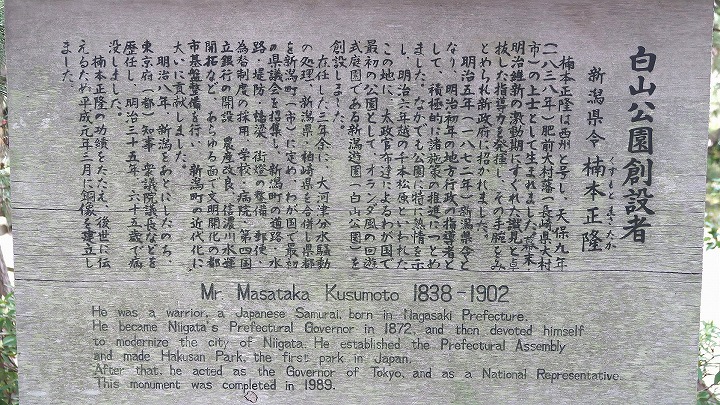 白山公園創設者
新潟県令 楠本正隆
くすもと まさたか
楠本正隆は西州と号し、天保九年
(一八三八)肥前大村藩(長崎県大村
市)の上士として生まれました。幕末・
明治維新の激動期にすぐれた識見と卓
抜した指導力を発揮し、その手腕をみ
とめられ新政府に招かれました。
明治五年(一八七二)新潟県令と
なり、明治初年の地方行政の指導者と
して、積極的に諸施策の推進につとめ
ました。なかでも公園に特に熱情を示
し、明治六年越の千本松原といわれた
この地に、太政官布達によるわが国で
最初の公園として、オランダ風の回遊
式庭園である新潟遊園(白山公園)を
創設しました。
在任した三年余に、大河津分水騒動
の処理、新潟県・柏崎県を合併し県都
を新潟町(市)に定め、わが国で最初
の県議会を招集し、新潟町の道路・水
路・堤防・橋梁・街燈の整備、郵便、
為替制度の採用、学校・病院・第四国
立銀行の開設、農産改良、信濃川水運
開拓など、あらゆる面で文明開化の都
市基盤整備を行い、新潟町の近代化に
大いに貢献しました。
明治八年、新潟をあとにしたのち、
東京府(都)知事、衆議院議長などを
歴任し、明治三十五年、六十五歳で病
没しました。
楠本正隆の功績をたたえ、後世に伝
えるため平成元年三月に銅像を建立し
ました。
Mr. Masataka Kusumoto 1838-1902
He was a warrior, a Japanese Samurai, born in Nagasaki Prefecture.
He became Niigata's Prefectural Governor in 1872, and then devoted himself
to modernize the city of Niigata. He established the Prefectural Assembly
and made Hakusan Park, the first park in Japan.
After that, he acted as the Governor of Tokyo, and as a National Representative.
This monument was completed in 1989.